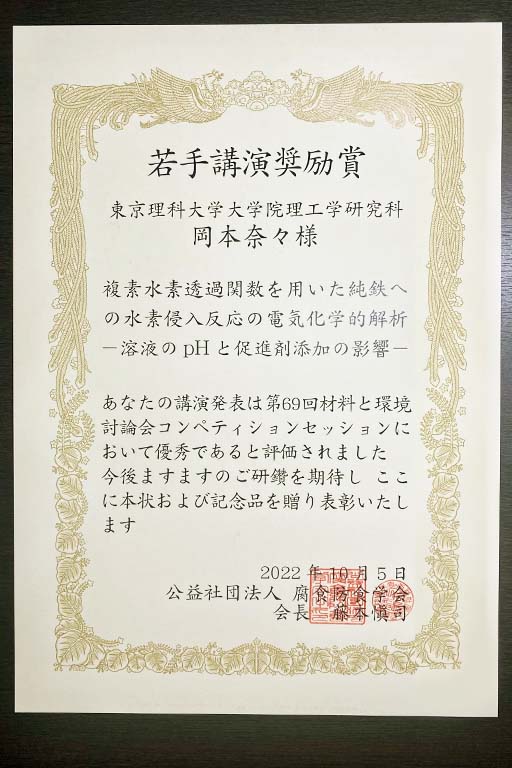 若手講演奨励賞
東京理科大学大学院理工学研究科
岡本奈々様
複素水素透過関数を用いた純鉄へ
の水素侵入反応の電気化学的解析
－溶液のpHと促進剤添加の影響－
あなたの講演発表は第69回材料と環境
討論会コンペティションセッションに
おいて優秀であると評価されました
今後ますますのご研鑽を期待し ここ
に本状および記念品を贈り表彰いたし
ます
2022年10月5日
公益社団法人 腐食防食学会
会長 藤本愼司